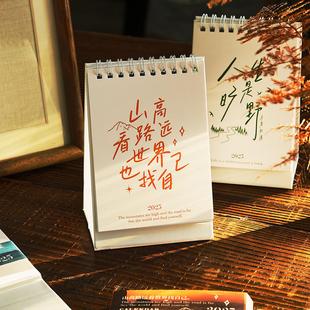 山高
看路远
世界
也找自己
2025
The mountains are high and the road is far
See the world and find yourself.
人生
是
旷野
2025
山高路远看世界也找自己
CALENDAR
2025